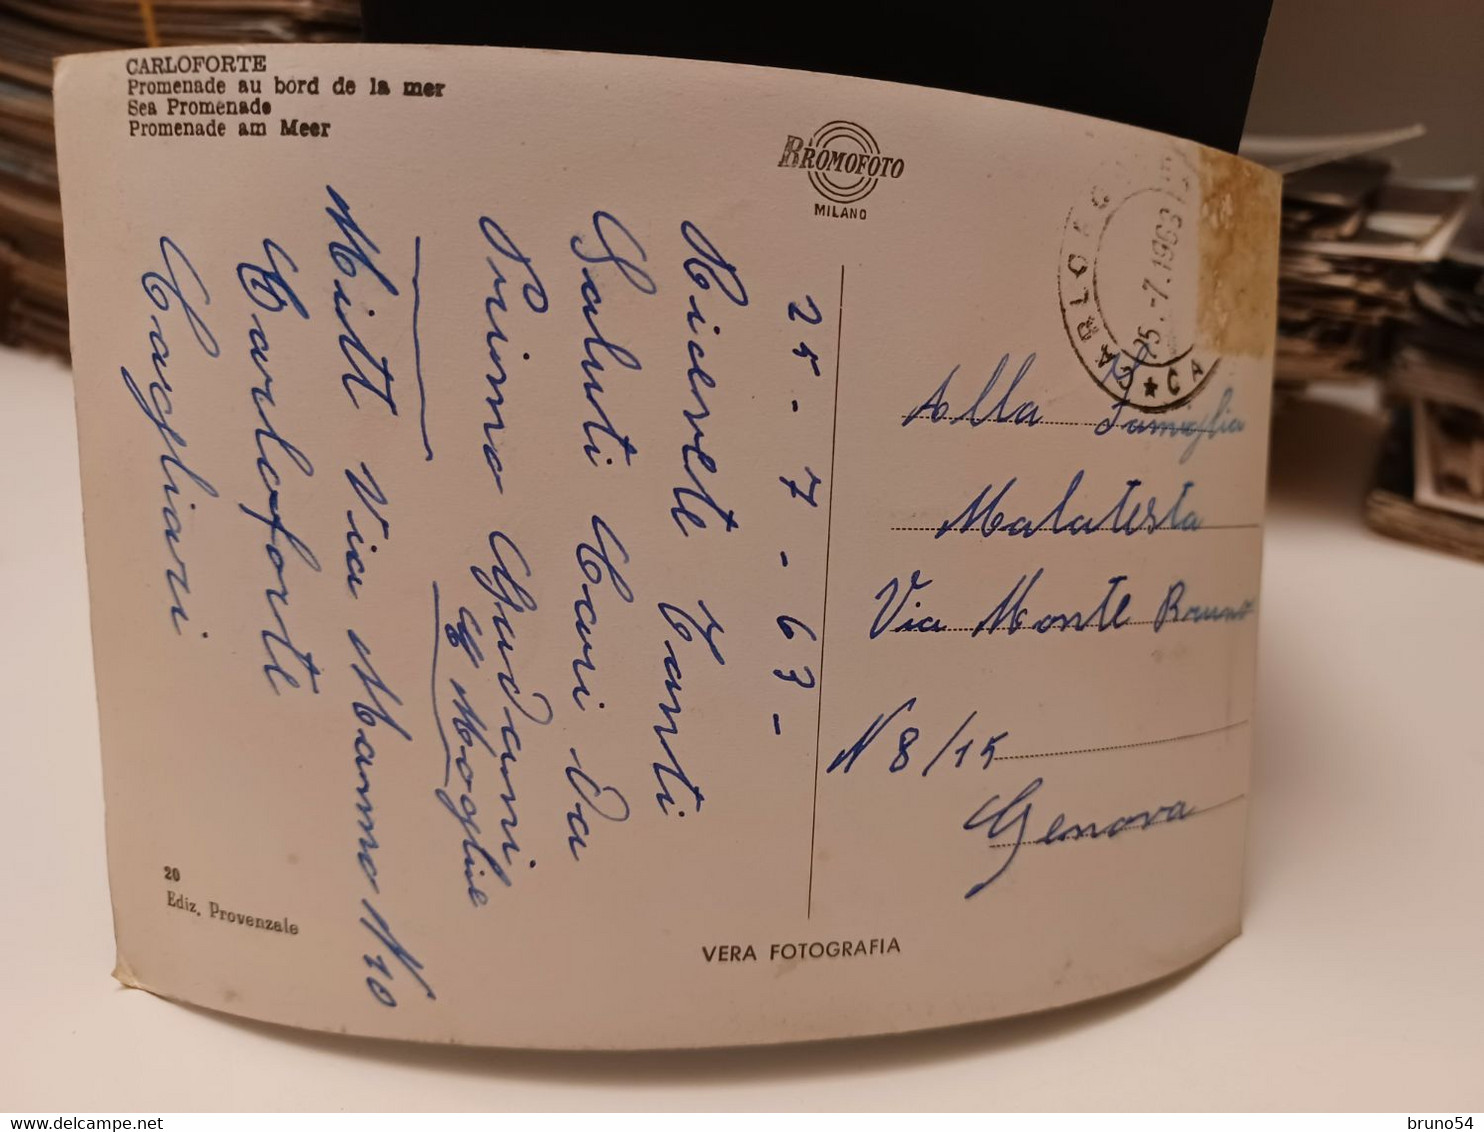 CARLOFORTE
Promenade au bord de la mer
Sea Promenade
Promenade am Meer
BROMOFOTO
MILANO
25-7-63-
Ricevete Tanti
Saluti Cari Da
Primo
E Moglie
Mitt Via Manno N 10
Carloforte
Cagliari
CARLOFORTE
25.-7.1963
CA
Alla Famiglia
Malatesta
Via Monte Bruno
N 8/15
Genova
20
Ediz. Provenzale
VERA FOTOGRAFIA
delcampe.net
bruno54